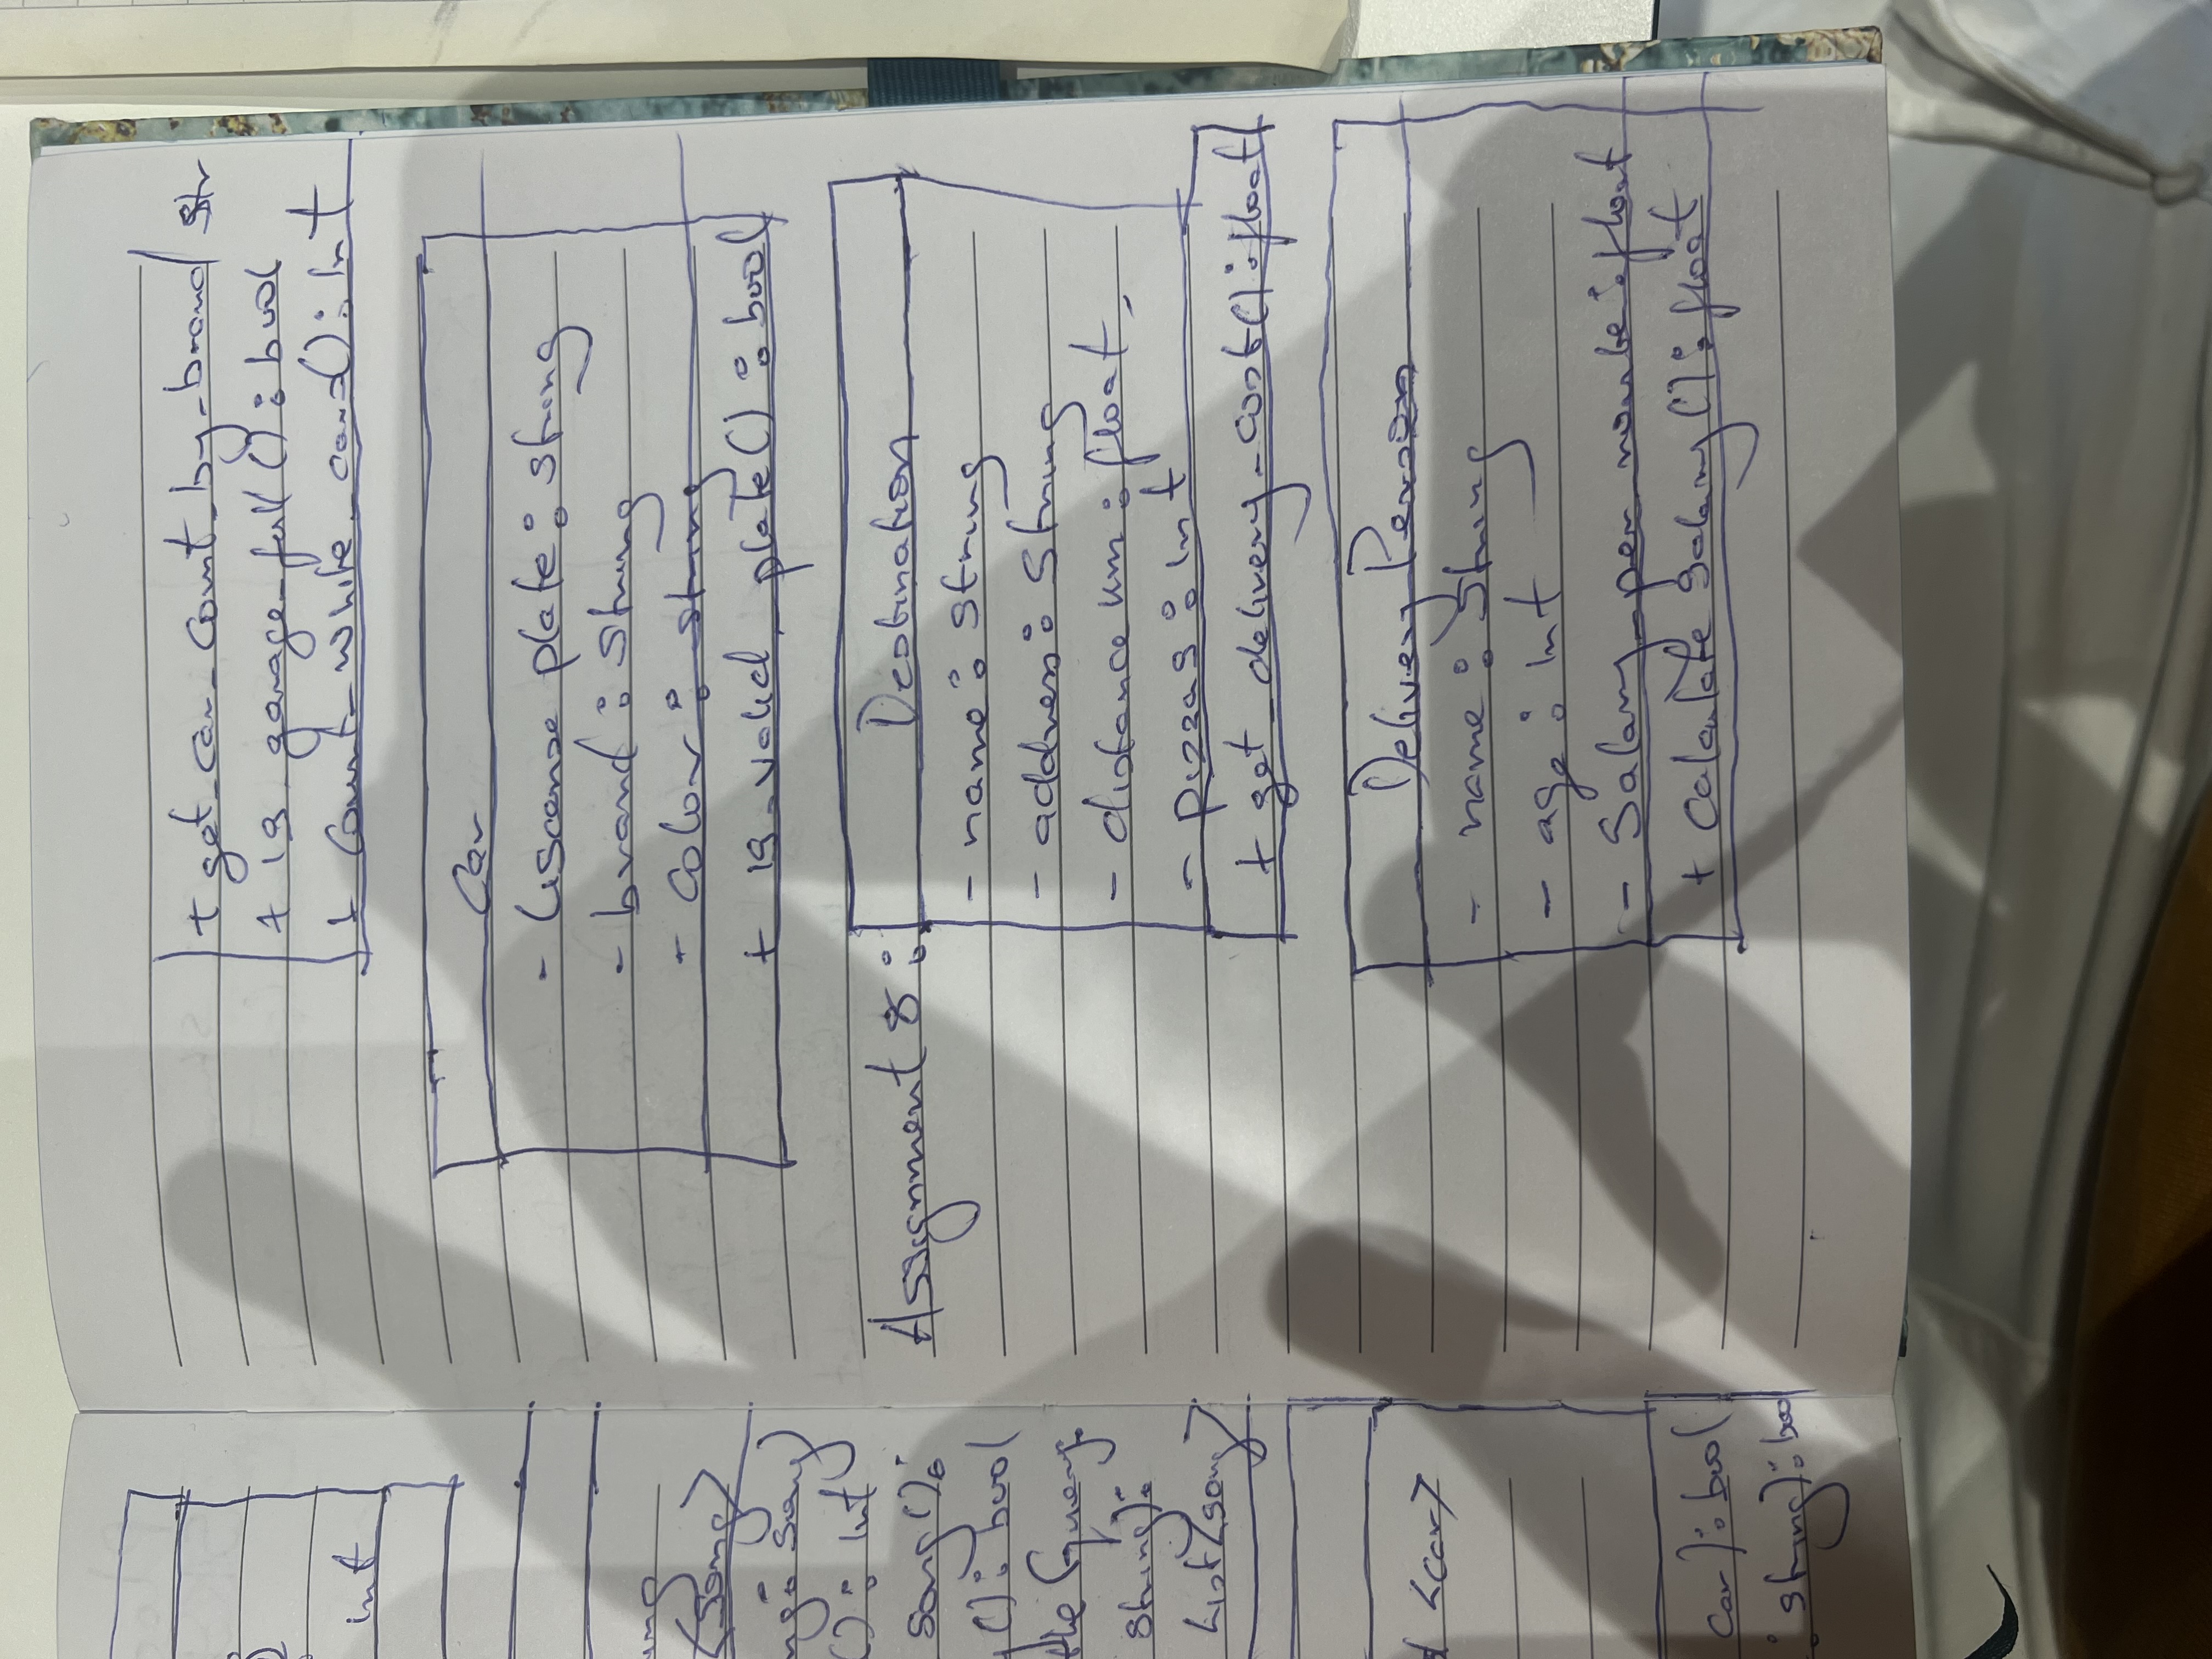 int
ing
<song>
ng: song)
(): int
song():
y(): bool
the Query:
string):
List<song>
<car>
car): bool
: string): bool
+ get_car_count_by_brand str
+ is_garage_full(): bool
+ Count_white_cars(): int
Car
- Liscense plate: string
- brand: string
- Color: string
+ is_valid_plate(): bool
Assignment 8:
Destination
- name: string
- address: string
- distance km: float
- pizzas: int
+ get_delivery_cost(): float
Delivery Person
- name: string
- age: int
- Salary_per_ : float
+ Calculate Salary(): float